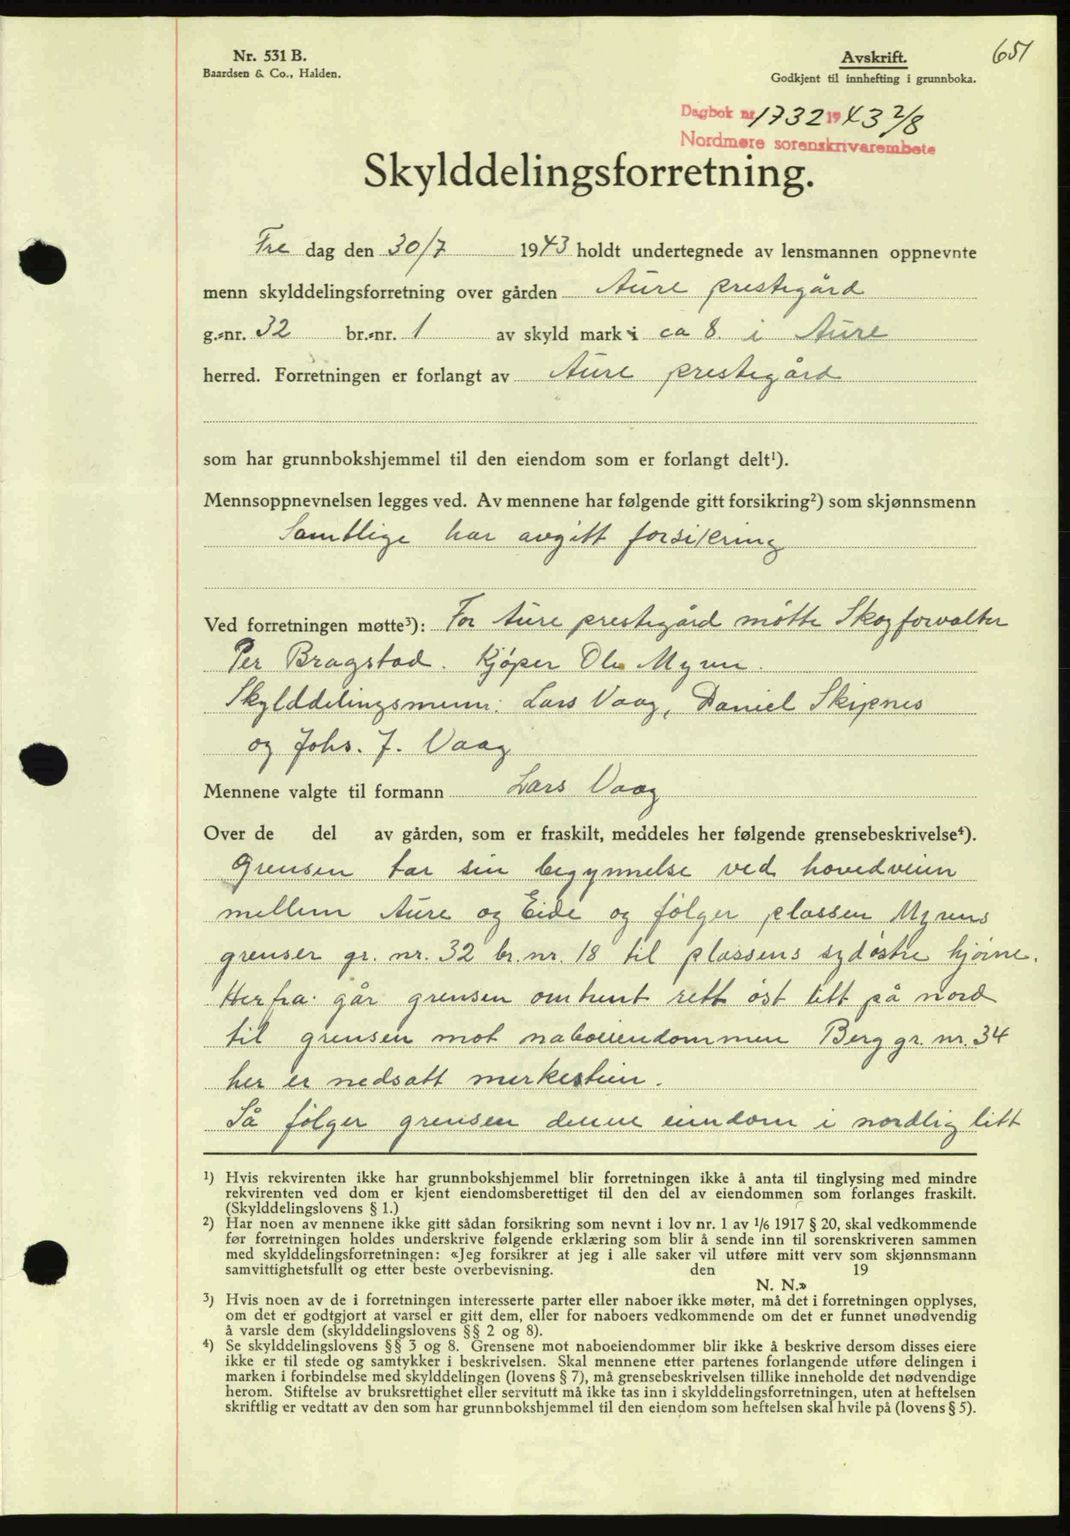 651
Nr. 531 B.
Baardsen & Co., Halden.
Avskrift.
Godkjent til innhefting i grunnboka.
Dagbok nr. 1732 1943 2/8
Nordmøre sorenskrivarembete
Skylddelingsforretning.
Fre dag den 30/7 1943 holdt undertegnede av lensmannen oppnevnte
menn skylddelingsforretning over gården Aure prestegård
g.-nr. 32 br.-nr. 1 av skyld mark i ca 8. i Aure
herred. Forretningen er forlangt av Aure prestegård
som har grunnbokshjemmel til den eiendom som er forlangt delt¹).
Mennsoppnevnelsen legges ved. Av mennene har følgende gitt forsikring²) som skjønnsmenn
Samtlige har avgitt forsikring
Ved forretningen møtte³): For Aure prestegård møtte Skogforvalter
Per Bragstad. Kjøper Ole Myren.
Skylddelingsmenn: Lars Vaag, Daniel Skipnes
og Johs. J. Vaag
Mennene valgte til formann Lars Vaag
Over de del av gården, som er fraskilt, meddeles her følgende grensebeskrivelse⁴).
Grensen tar sin begynnelse ved hovedveien
mellem Aure og Eide og følger plassen Myrens
grenser gr. nr. 32 br. nr. 18 til plassens sydøstre hjørne.
Herfra går grensen omtrent rett øst litt på nord
til grensen mot naboeiendommen Berg gr. nr. 34
her er nedsatt merkestein.
Så følger grensen denne eiendom i nordlig litt
¹) Hvis rekvirenten ikke har grunnbokshjemmel blir forretningen ikke å anta til tinglysing med mindre
rekvirenten ved dom er kjent eiendomsberettiget til den del av eiendommen som forlanges fraskilt.
(Skylddelingslovens § 1.)
²) Har noen av mennene ikke gitt sådan forsikring som nevnt i lov nr. 1 av 1/6 1917 § 20, skal vedkommende
før forretningen holdes underskrive følgende erklæring som blir å sende inn til sorenskriveren sammen
med skylddelingsforretningen: «Jeg forsikrer at jeg i alle saker vil utføre mitt verv som skjønnsmann
samvittighetsfullt og etter beste overbevisning. den 19
N. N.»
³) Hvis noen av de i forretningen interesserte parter eller naboer ikke møter, må det i forretningen opplyses,
om det er godtgjort at varsel er gitt dem, eller for naboers vedkommende om det er funnet unødvendig
å varsle dem (skylddelingslovens §§ 2 og 8).
⁴) Se skylddelingslovens §§ 3 og 8. Grensene mot naboeiendommer blir ikke å beskrive dersom disses eiere
ikke er til stede og samtykker i beskrivelsen. Skal mennene etter partenes forlangende utføre delingen i
marken i forbindelse med skylddelingen (lovens § 7), må grensebeskrivelsen tillike inneholde det nødvendige
herom. Stiftelse av bruksrettighet eller servitutt må ikke tas inn i skylddelingsforretningen, uten at heftelsen
skriftlig er vedtatt av den som har grunnbokshjemmel til den eiendom som heftelsen skal hvile på (lovens § 5).